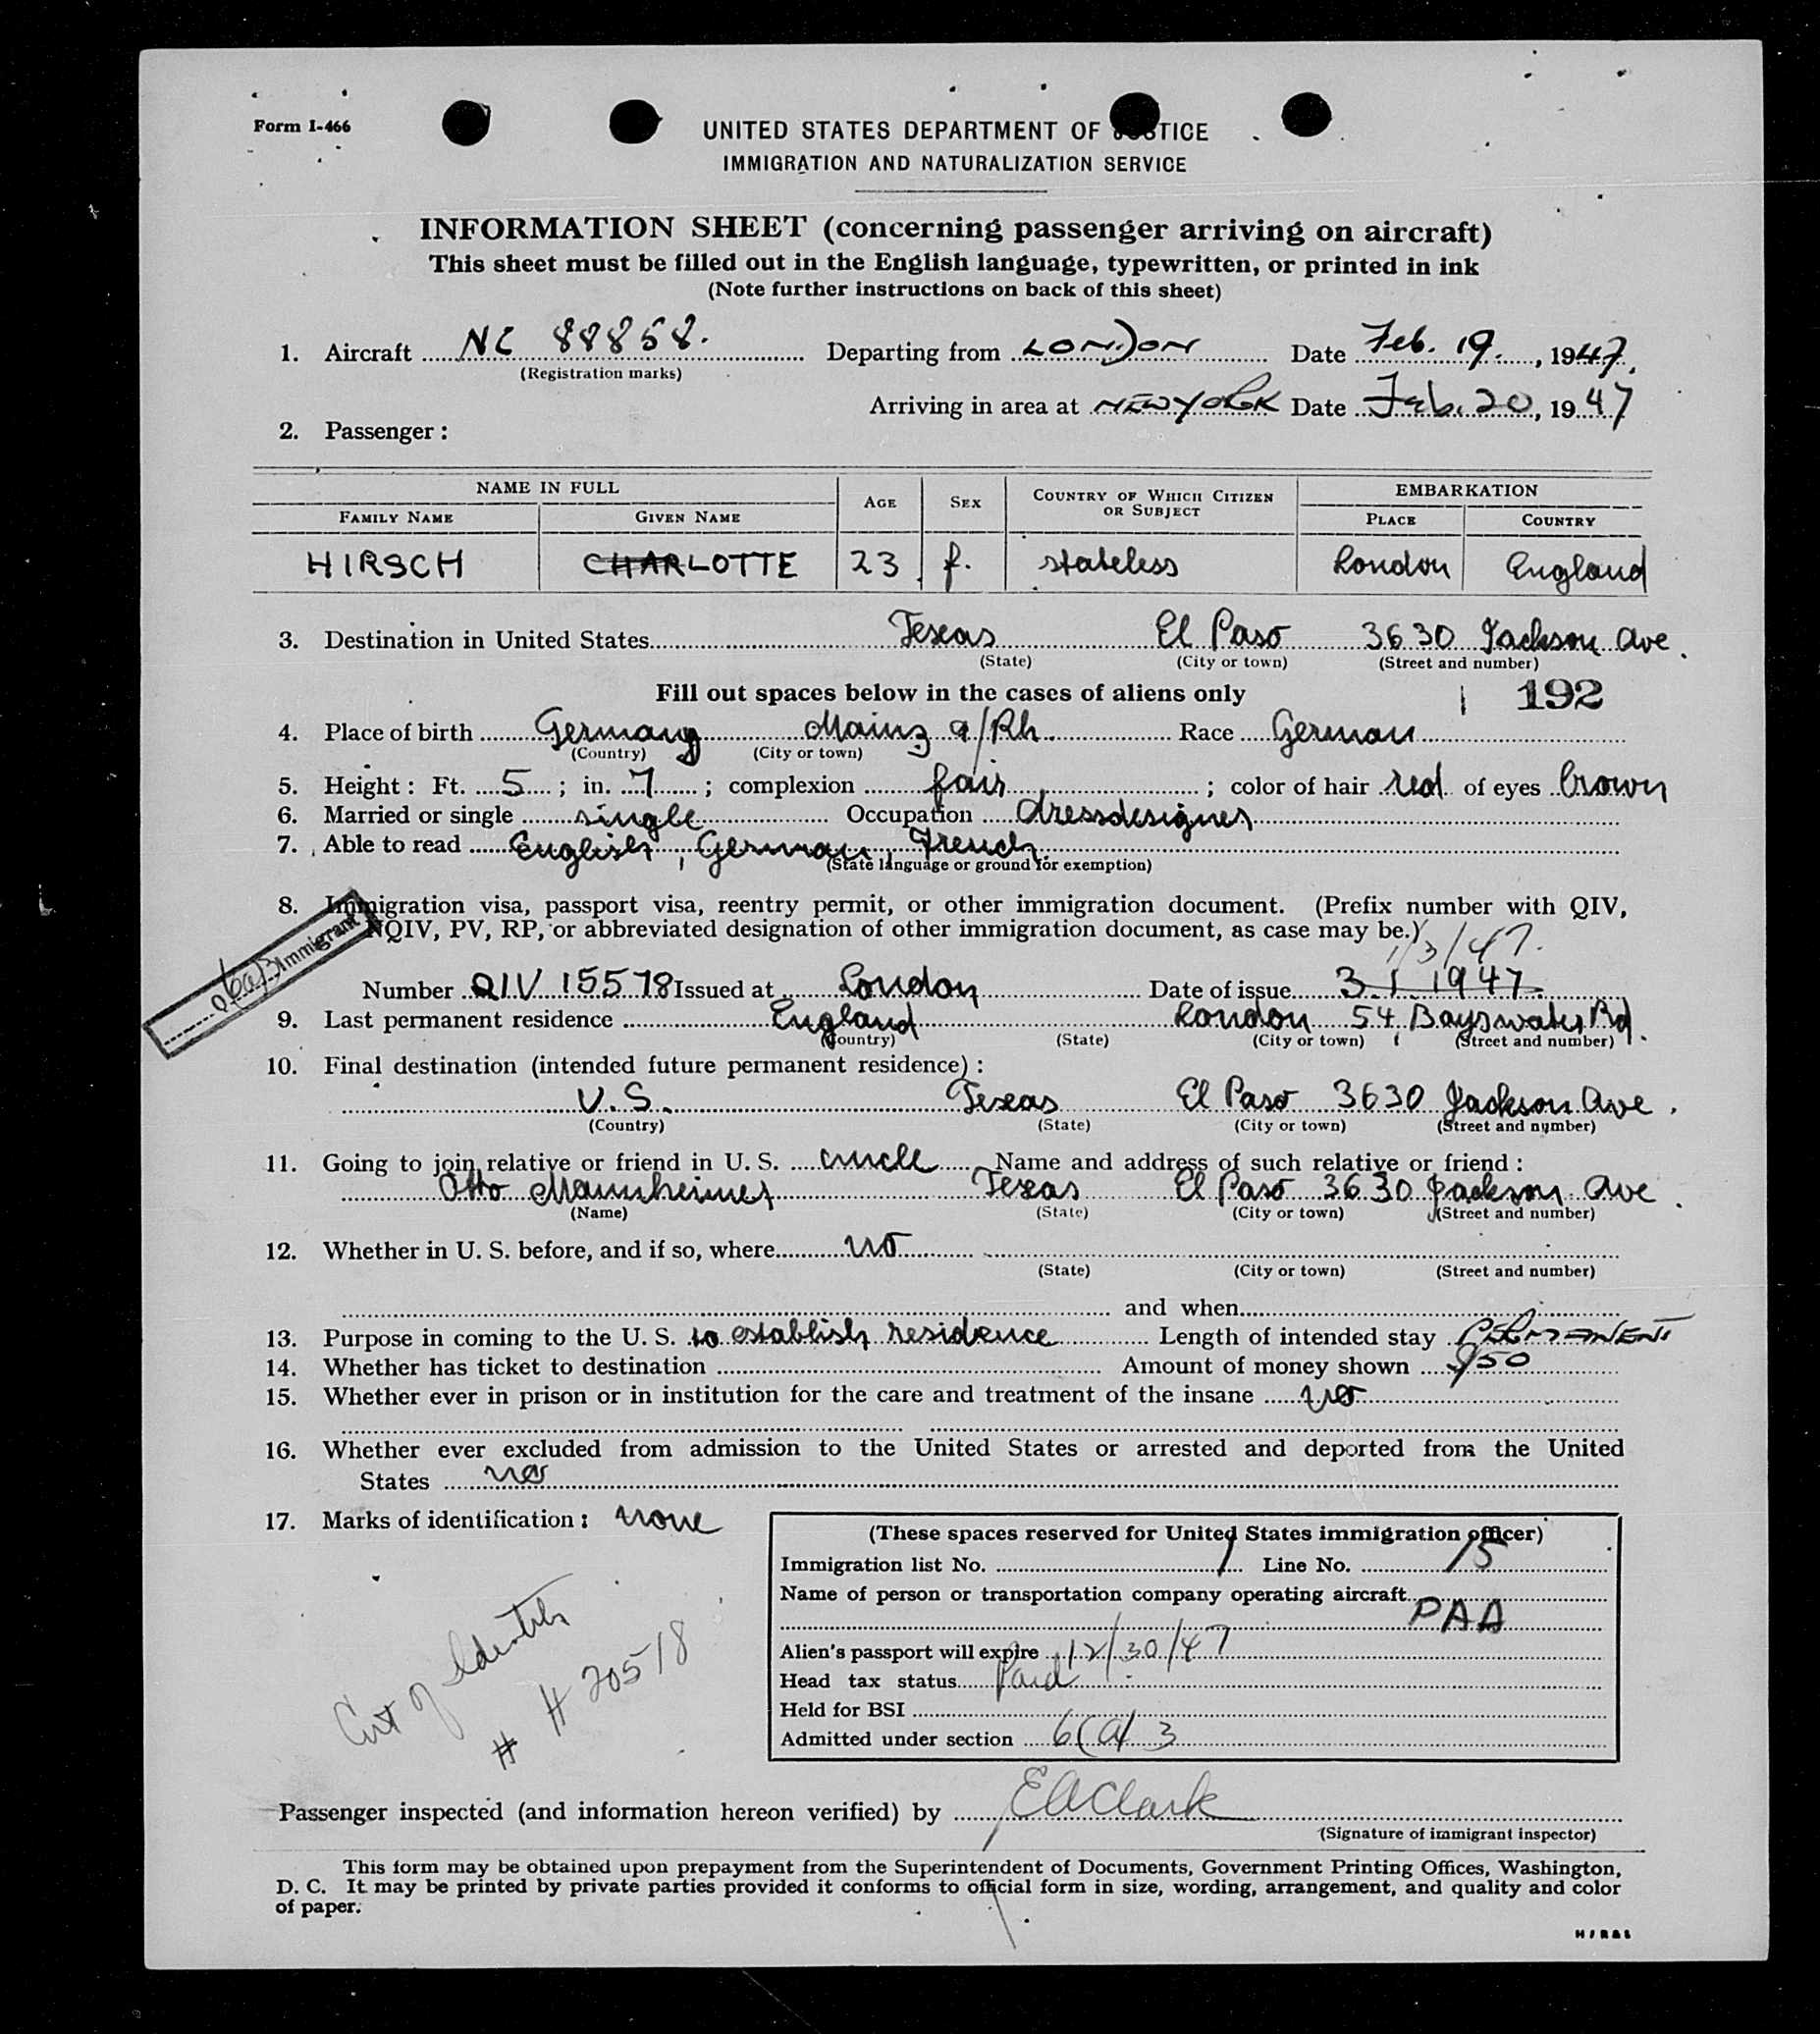 Form I-466
UNITED STATES DEPARTMENT OF JUSTICE
IMMIGRATION AND NATURALIZATION SERVICE
INFORMATION SHEET (concerning passenger arriving on aircraft)
This sheet must be filled out in the English language, typewritten, or printed in ink
(Note further instructions on back of this sheet)
1. Aircraft NC 88858. Departing from LONDON Date Feb. 19, 1947.
(Registration marks)
Arriving in area at NEW YORK Date Feb. 20, 1947
2. Passenger:
NAME IN FULL AGE SEX COUNTRY OF WHICH CITIZEN OR SUBJECT EMBARKATION
FAMILY NAME GIVEN NAME PLACE COUNTRY
HIRSCH CHARLOTTE 23 f. stateless London England
3. Destination in United States Texas El Paso 3630 Jackson Ave.
(State) (City or town) (Street and number)
Fill out spaces below in the cases of aliens only 192
4. Place of birth Germany Mainz a/Rh. Race German
(Country) (City or town)
5. Height: Ft. 5; in. 7; complexion fair; color of hair red of eyes brown
6. Married or single single Occupation dressdesigner
7. Able to read English, German, French
(State language or ground for exemption)
8. Immigration visa, passport visa, reentry permit, or other immigration document. (Prefix number with QIV,
NQIV, PV, RP, or abbreviated designation of other immigration document, as case may be.)
Immigrant
1/3/47.
Number QIV 15578 Issued at London Date of issue 3.1.1947.
9. Last permanent residence England London 54, Bayswater Rd.
(Country) (State) (City or town) (Street and number)
10. Final destination (intended future permanent residence):
U.S. Texas El Paso 3630 Jackson Ave.
(Country) (State) (City or town) (Street and number)
11. Going to join relative or friend in U. S. uncle Name and address of such relative or friend:
Otto Mannheimer Texas El Paso 3630 Jackson Ave.
(Name) (State) (City or town) (Street and number)
12. Whether in U. S. before, and if so, where no
(State) (City or town) (Street and number)
and when
13. Purpose in coming to the U. S. to establish residence Length of intended stay PERMANENT
14. Whether has ticket to destination Amount of money shown $50
15. Whether ever in prison or in institution for the care and treatment of the insane no
16. Whether ever excluded from admission to the United States or arrested and deported from the United
States no
17. Marks of identification: none
(These spaces reserved for United States immigration officer)
Immigration list No. 1 Line No. 15
Name of person or transportation company operating aircraft
PAA
Alien's passport will expire 12/30/47
Head tax status Paid
Held for BSI
Admitted under section 6(a) 3
Cert of Identity
# H 20518
Passenger inspected (and information hereon verified) by EAClark
(Signature of immigrant inspector)
This form may be obtained upon prepayment from the Superintendent of Documents, Government Printing Offices, Washington,
D. C. It may be printed by private parties provided it conforms to official form in size, wording, arrangement, and quality and color
of paper.